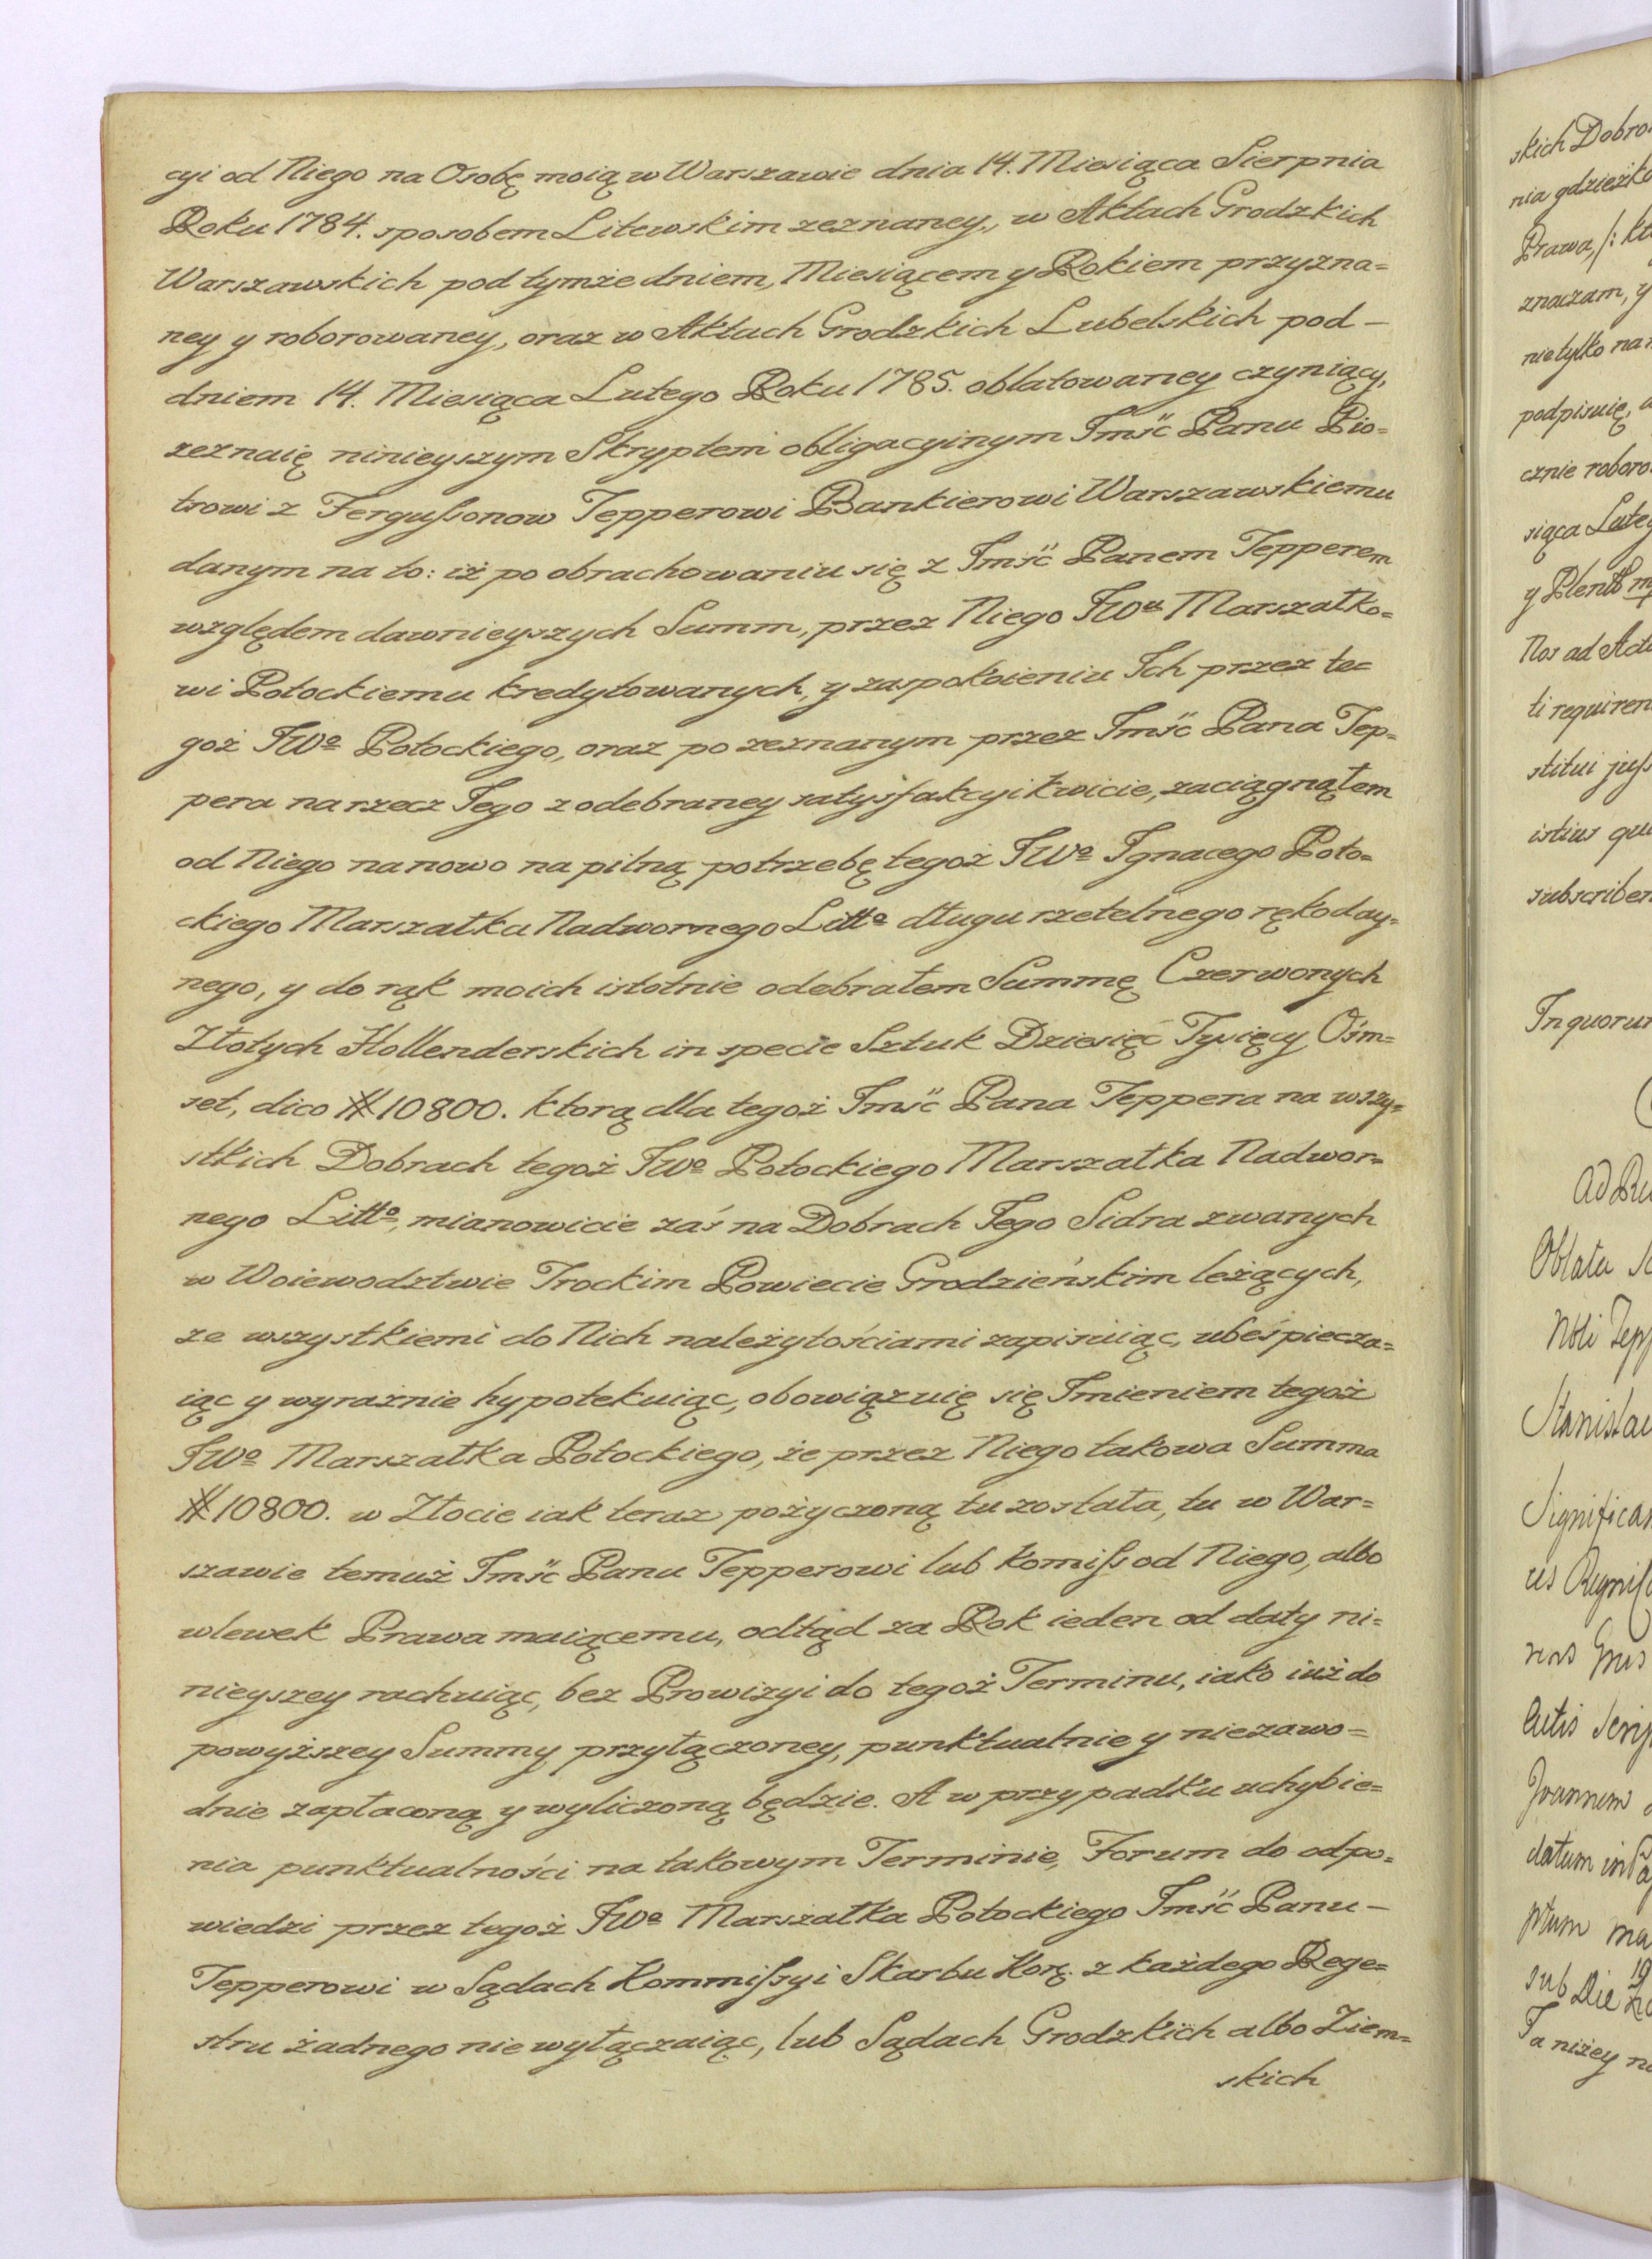 cyi od Niego na Osobę moią w Warszawie dnia 14. Miesiąca Sierpnia
Roku 1784. sposobem Litewskim zeznaney, w Aktach Grodzkich
Warszawskich pod tymże dniem, Miesiącem y Rokiem przyzna=
ney y roborowaney, oraz w Aktach Grodzkich Lubelskich pod –
dniem 14. Miesiąca Lutego Roku 1785. oblatowaney czyniący,
zeznaię ninieyszym Skryptem obligacyinym Jmść Panu Pio=
trowi z Fergussonow Tepperowi Bankierowi Warszawskiemu
danym na to: iż po obrachowaniu się z Jmść Panem Tepperem
względem dawnieyszych Summ, przez Niego JWu Marszałko=
wi Potockiemu kredytowanych, y zaspokoieniu Ich przez te=
goż JWo Potockiego, oraz po zeznanym przez Jmść Pana Tep=
pera na rzecz Jego z odebraney satysfakcyi kwicie, zaciągnąłem
od Niego na nowo na pilną potrzebę tegoż JWo Ignacego Poto=
ckiego Marszałka Nadwornego Litto długu rzetelnego rękoday=
nego, y do rąk moich istotnie odebrałem Summę Czerwonych
Złotych Hollenderskich in specie Sztuk Dziesięć Tysięcy Ośm=
set, dico # 10800. ktorą dla tegoż Jmść Pana Teppera na wszy=
stkich Dobrach tegoż JWo Potockiego Marszałka Nadwor=
nego Litto, mianowicie zaś na Dobrach Jego Sidra zwanych
w Woiewodztwie Trockim Powiecie Grodzieńskim leżących,
ze wszystkiemi do Nich należytościami zapisuiąc, ubeśpiecza=
iąc y wyraźnie hypotekuiąc, obowiązuię się Jmieniem tegoż
JWo Marszałka Potockiego, że przez Niego takowa Summa
# 10800. w Złocie iak teraz pożyczoną tu została, tu w War=
szawie temuż Jmść Panu Tepperowi lub komiss od Niego, albo
wlewek Prawa maiącemu, odtąd za Rok ieden od daty ni=
nieyszey rachuiąc, bez Prowizyi do tegoż Terminu, iako iuż do
powyższey Summy przyłączoney, punktualnie y niezawo=
dnie zapłaconą y wyliczoną będzie. A w przypadku uchybie=
nia punktualności na takowym Terminie, Forum do odpo=
wiedzi przez tegoż JWo Marszałka Potockiego Jmść Panu –
Tepperowi w Sądach Kommissyi Skarbu Kor: z każdego Rege=
stru żadnego nie wyłączaiąc, lub Sądach Grodzkich albo Ziem=
skich
skich Dobro
nia gdzieżko
Prawa, /: kt
znaczam, y
nie tylko na
podpisuię, a
cznie roboro
siąca Luteg
Nos ad Act
ti requiren
stitui juss
istius qu
subscriben
In quorum
Ad
Oblata
Nbli Tepp
Stanislau
Significa
Joannem
datum in
ptum ma
sub Die
Ja niżey n